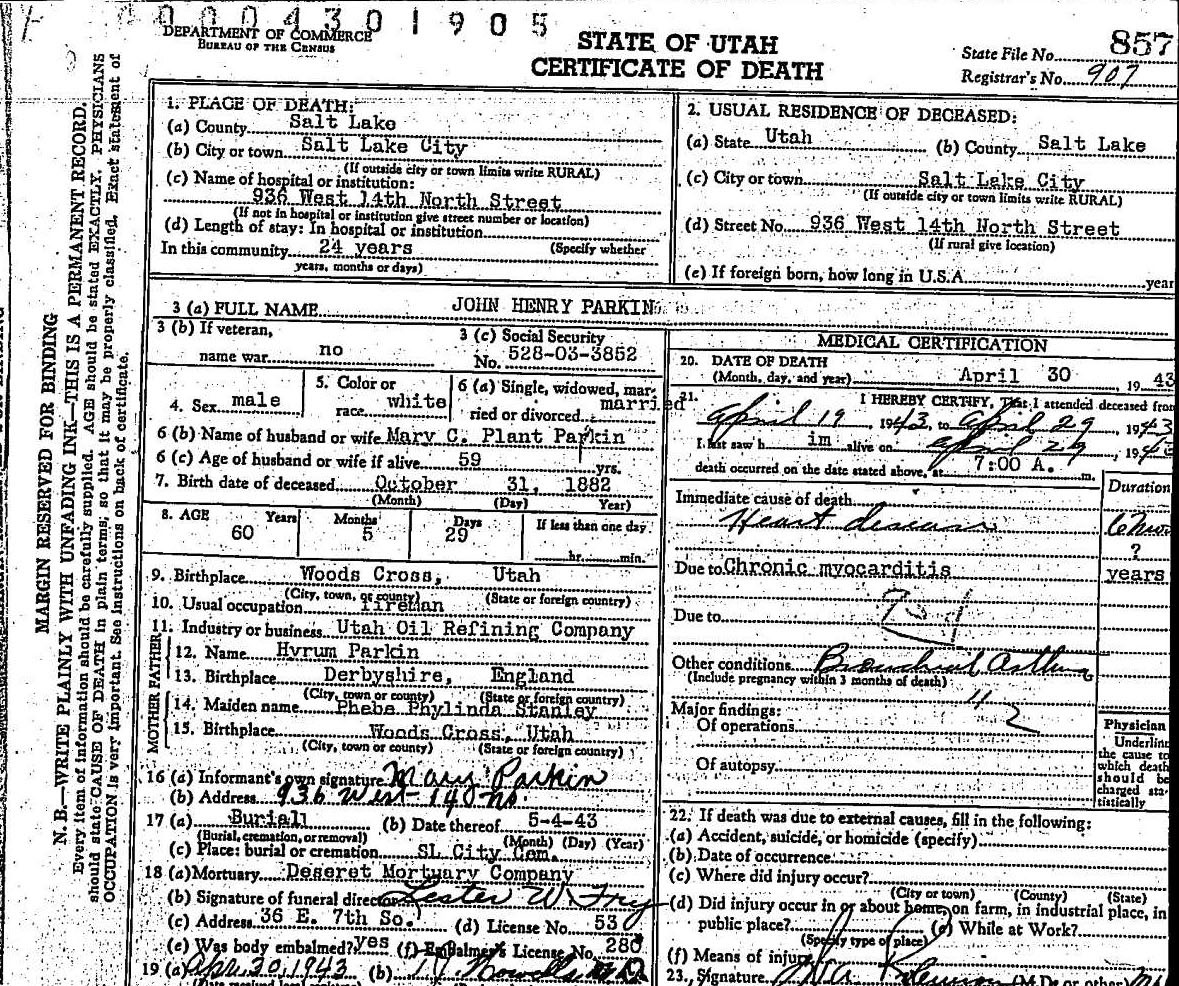 0004301905
DEPARTMENT OF COMMERCE
BUREAU OF THE CENSUS
STATE OF UTAH
CERTIFICATE OF DEATH
State File No. 857
Registrar's No. 907
MARGIN RESERVED FOR BINDING
N. B.—WRITE PLAINLY WITH UNFADING INK—THIS IS A PERMANENT RECORD.
Every item of information should be carefully supplied. AGE should be stated EXACTLY. PHYSICIANS
should state CAUSE OF DEATH in plain terms, so that it may be properly classified. Exact statement of
OCCUPATION is very important. See instructions on back of certificate.
1. PLACE OF DEATH:
(a) County Salt Lake
(b) City or town Salt Lake City
(If outside city or town limits write RURAL)
(c) Name of hospital or institution:
936 West 14th North Street
(If not in hospital or institution give street number or location)
(d) Length of stay: In hospital or institution
In this community 24 years (Specify whether
years, months or days)
2. USUAL RESIDENCE OF DECEASED:
(a) State Utah (b) County Salt Lake
(c) City or town Salt Lake City
(If outside city or town limits write RURAL)
(d) Street No. 936 West 14th North Street
(If rural give location)
(e) If foreign born, how long in U.S.A. year
3 (a) FULL NAME JOHN HENRY PARKIN
3 (b) If veteran,
name war no
3 (c) Social Security
No. 528-03-3852
4. Sex male
5. Color or
race white
6 (a) Single, widowed, mar-
ried or divorced married
6 (b) Name of husband or wife Mary C. Plant Parkin
6 (c) Age of husband or wife if alive 59 yrs.
7. Birth date of deceased October 31, 1882
(Month) (Day) Year)
8. AGE Years Months Days If less than one day
60 5 29 hr. min.
9. Birthplace Woods Cross, Utah
(City, town, or county) (State or foreign country)
10. Usual occupation fireman
11. Industry or business Utah Oil Refining Company
FATHER
12. Name Hyrum Parkin
13. Birthplace Derbyshire, England
(City, town or county) (State or foreign country)
MOTHER
14. Maiden name Phebe Phylinda Stanley
15. Birthplace Woods Cross, Utah
(City, town or county) (State or foreign country)
16 (a) Informant's own signature Mary Parkin
(b) Address 936 West 14 no.
17 (a) Buriall (b) Date thereof 5-4-43
(Burial, cremation, or removal) (Month) (Day) (Year)
(c) Place: burial or cremation SL City Cem.
18 (a) Mortuary Deseret Mortuary Company
(b) Signature of funeral director Lester W. Fry
(c) Address 36 E. 7th So. (d) License No. 530
(e) Was body embalmed? yes (f) Embalmer's License No. 280
19 (a) Apr. 30, 1943 (b)
MEDICAL CERTIFICATION
20. DATE OF DEATH
(Month, day, and year) April 30 19 43
21. I HEREBY CERTIFY, That I attended deceased from
April 19 1943, to April 29, 1943
I last saw h im alive on april 29, 1943
death occurred on the date stated above, at 7:00 A. m.
Duration
Immediate cause of death
Heart disease
?
Due to Chronic myocarditis years
Due to
Other conditions Bronchial Asthma
(Include pregnancy within 3 months of death)
Major findings:
Of operations
Of autopsy
Physician
Underline
the cause to
which death
should be
charged sta-
tistically
22. If death was due to external causes, fill in the following:
(a) Accident, suicide, or homicide (specify)
(b) Date of occurrence
(c) Where did injury occur?
(City or town) (County) (State)
(d) Did injury occur in or about home, on farm, in industrial place, in
public place? (e) While at Work?
(Specify type of place)
(f) Means of injury
23. Signature (M.D. or other)